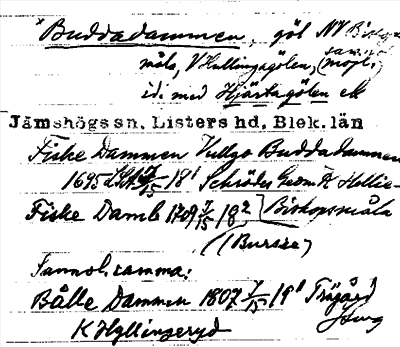 "Buddadammen, göl NV Biskops-
måla, V Hullingagölen, (möjl.
id. med Hjärtagölen ek
Jämshögs sn, Listers hd, Blek. län
Fiske Dammen Vullgo Buddadammen
1695 7/15 18¹ Schröder Geom. K Hollie-
Fiske Damb 1709 7/15 18² Biskopsmåla
(Bursee)
Sannol. samma:
Bålle Dammen 1807 7/15 19¹ Trägård
K Hyllingeryd